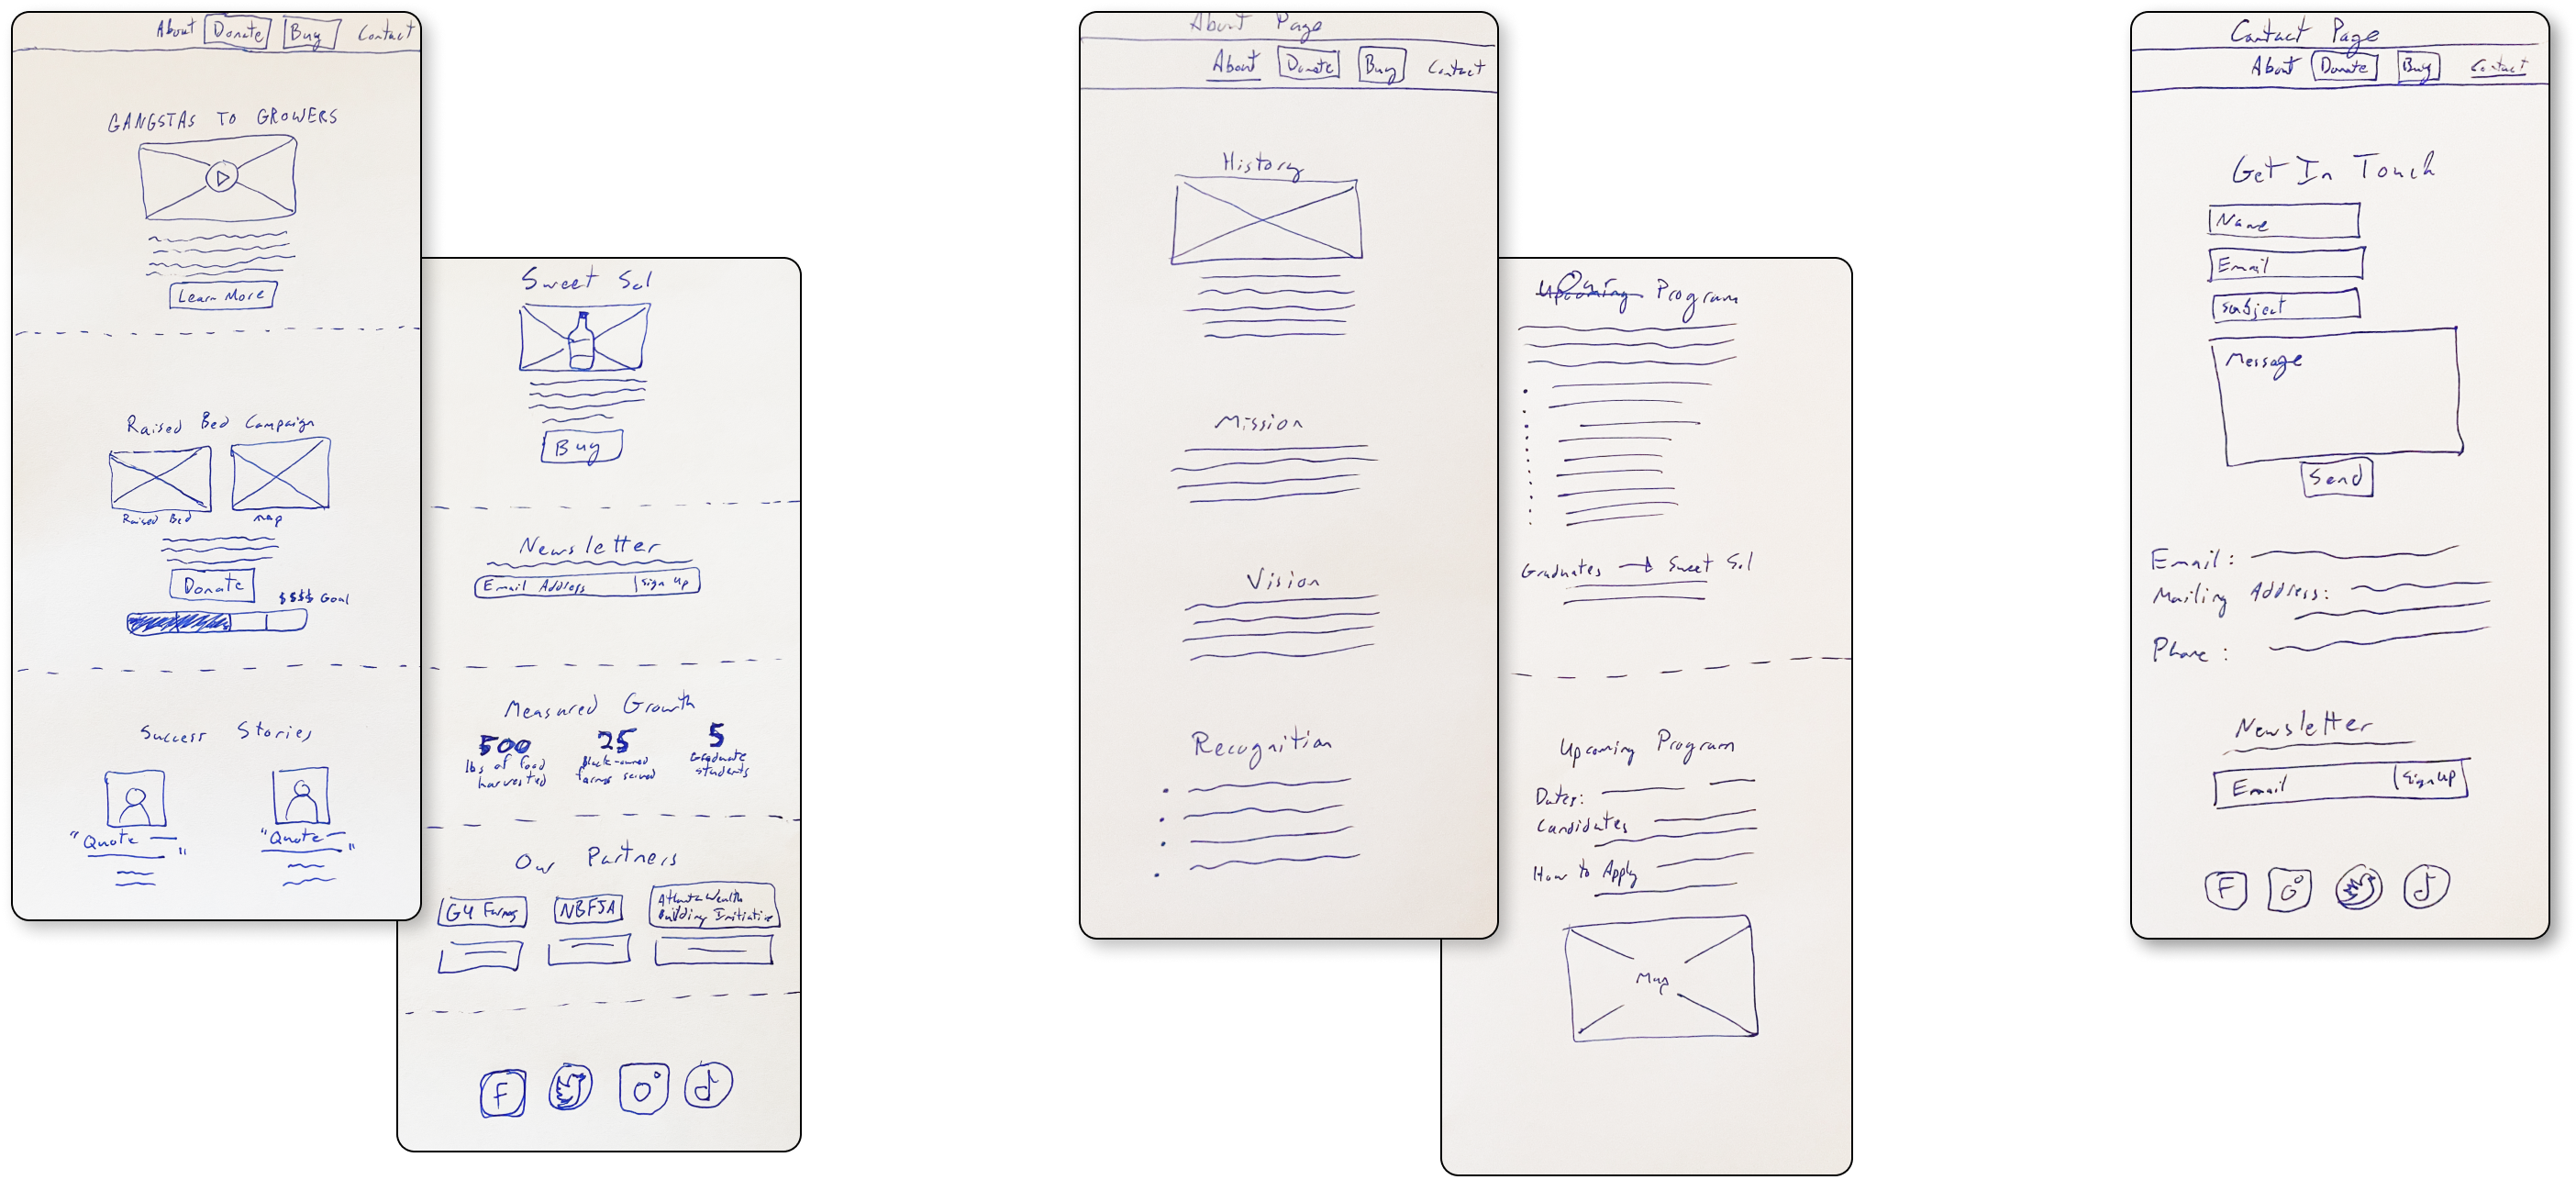 About Donate Buy Contact
GANGSTAS TO GROWERS
Learn More
Raised Bed Campaign
Raised Bed
map
Donate
$$$$ Goal
Success Stories
"Quote
"
"Quote
"
Sweet Sol
Buy
Newsletter
Email Address
Sign Up
Measured Growth
500
lbs of food
harvested
25
Black-owned
farms served
5
Graduate
students
Our Partners
G4 Farms
NBFJA
Atlanta Wealth
Building Initiative
F
About Page
About Donate Buy Contact
History
Mission
Vision
Recognition
Our
Upcoming Program
Graduates → Sweet Sol
Upcoming Program
Dates:
Candidates
How to Apply
Map
Contact Page
About Donate Buy Contact
Get In Touch
Name
Email
Subject
Message
Send
Email:
Mailing Address:
Phone:
Newsletter
Email
Sign up
F